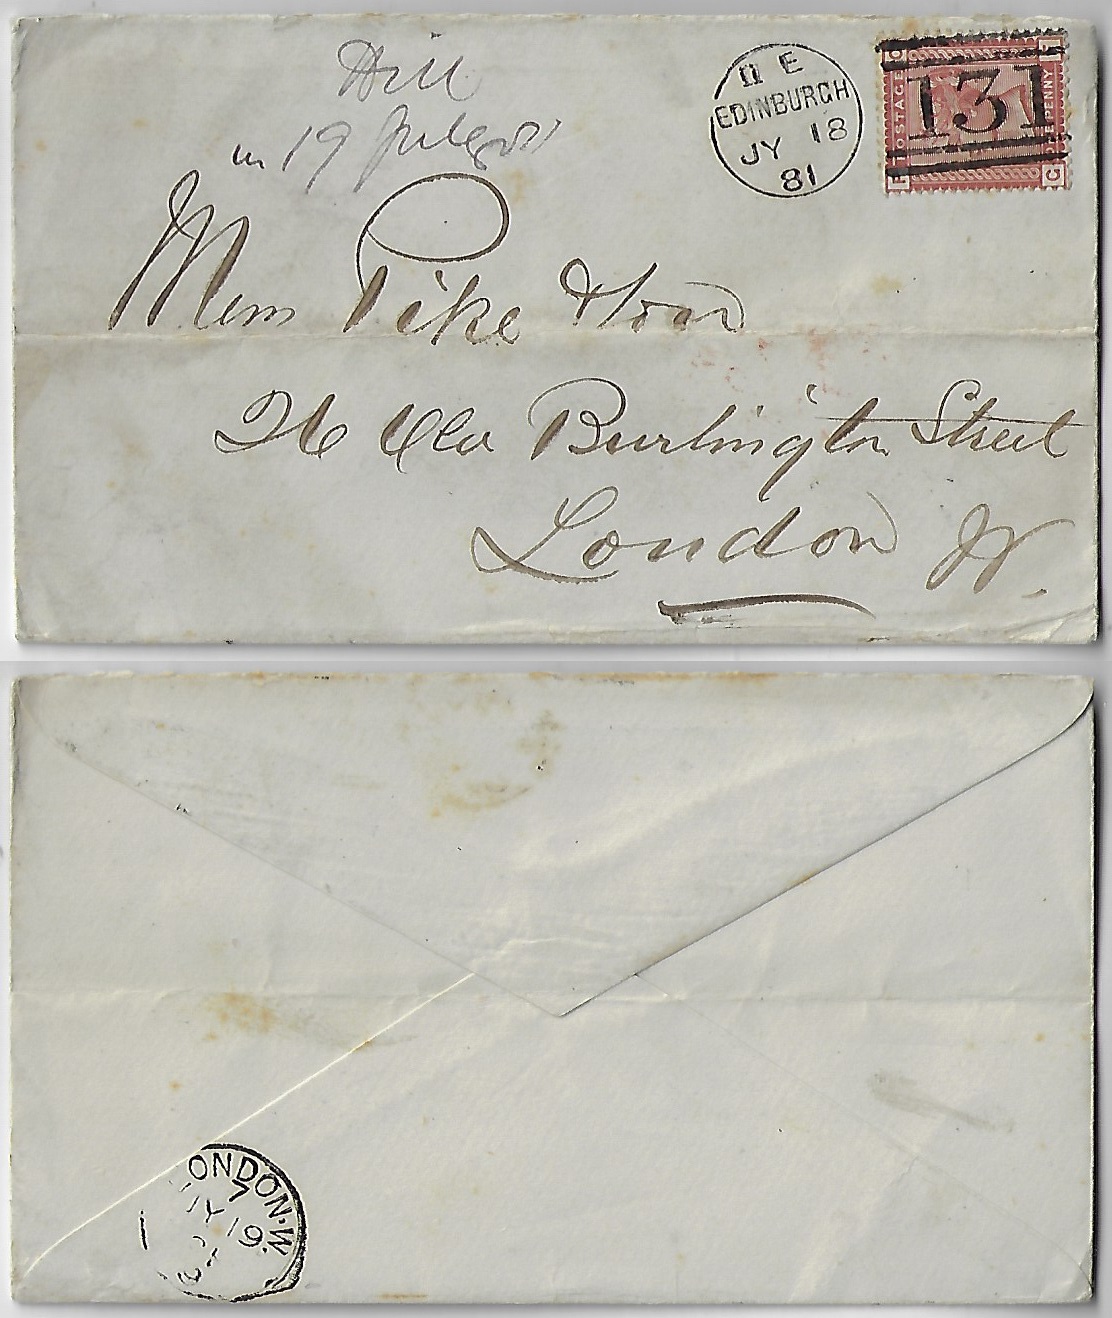 Hill
in 19 July 81
II E
EDINBURGH
JY 18
81
131
POSTAGE
PENNY
C
C
Mess Pike & Son
26 Old Burlington Street
London W.
LONDON·W.
7
JY 19